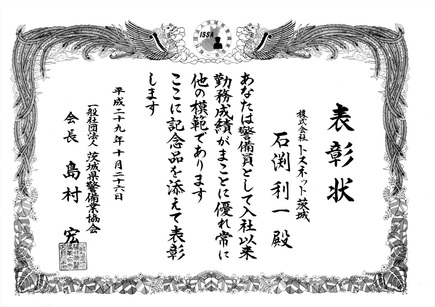 ISSA
表彰状
株式会社トスネット茨城
石渕利一殿
あなたは警備員として入社以来
勤務成績がまことに優れ常に
他の模範であります
ここに記念品を添えて表彰
します
平成二十九年十月二十六日
一般社団法人 茨城県警備業協会
会長 島村宏